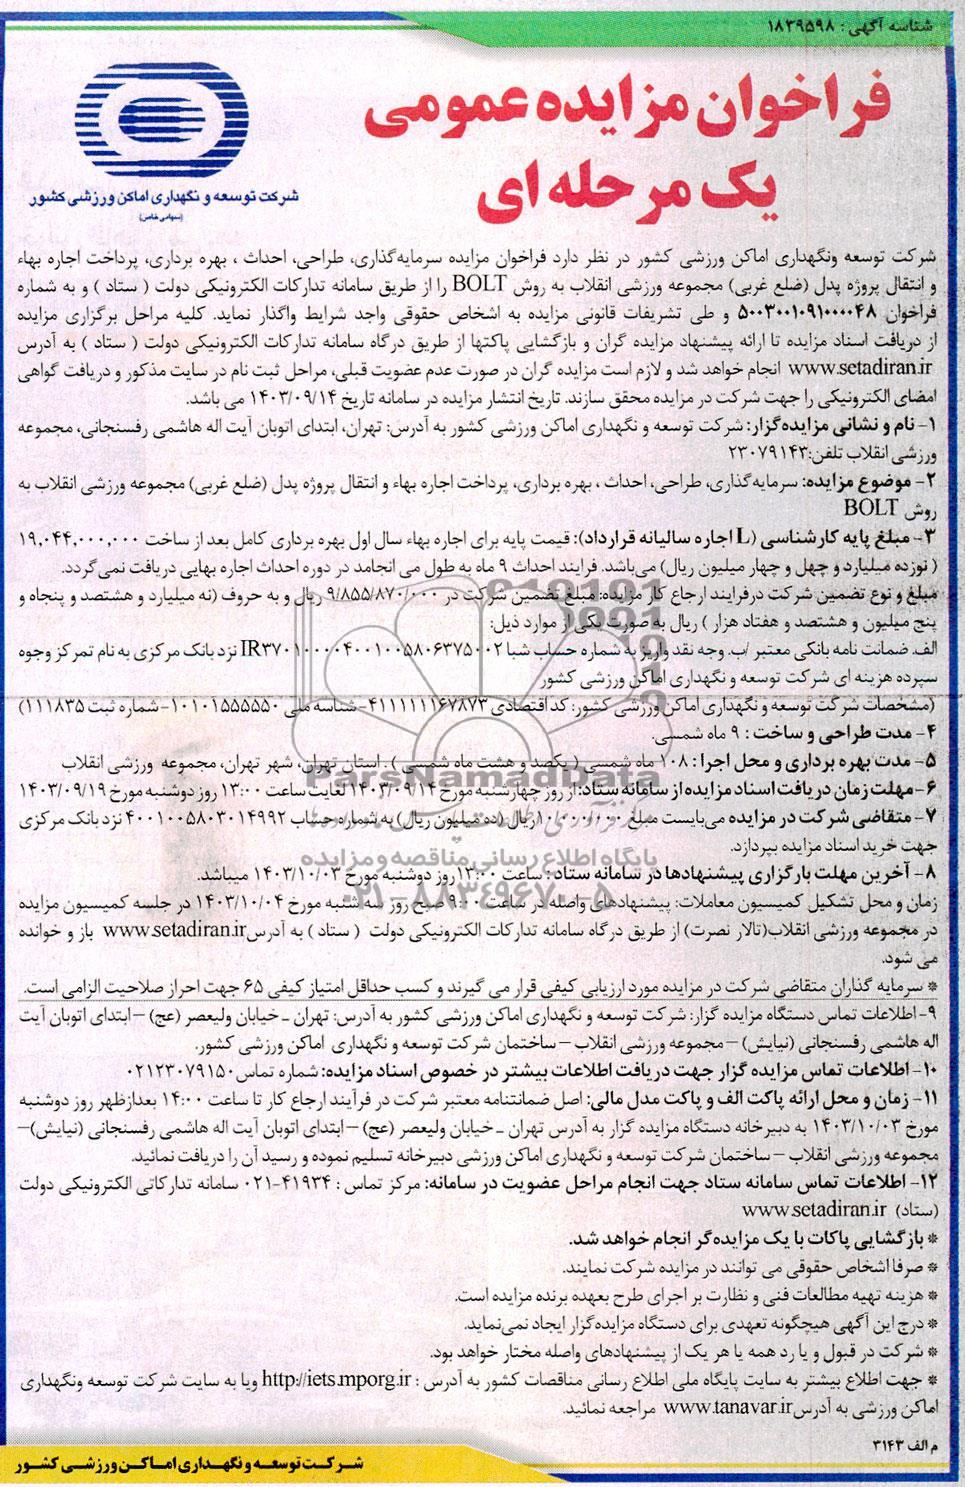 شناسه آگهی : ۱۸۳۹۵۹۸
فراخوان مزایده عمومی
یک مرحله ای
شرکت توسعه و نگهداری اماکن ورزشی کشور
(سهامی خاص)
شرکت توسعه ونگهداری اماکن ورزشی کشور در نظر دارد فراخوان مزایده سرمایه‌گذاری، طراحی، احداث ، بهره برداری، پرداخت اجاره بهاء
و انتقال پروژه پدل (ضلع غربی) مجموعه ورزشی انقلاب به روش BOLT را از طریق سامانه تدارکات الکترونیکی دولت ( ستاد ) و به شماره
فراخوان ۵۰۰۳۰۰۱۰۹۱۰۰۰۰۴۸ و طی تشریفات قانونی مزایده به اشخاص حقوقی واجد شرایط واگذار نماید. کلیه مراحل برگزاری مزایده
از دریافت اسناد مزایده تا ارائه پیشنهاد مزایده گران و بازگشایی پاکتها از طریق درگاه سامانه تدارکات الکترونیکی دولت ( ستاد ) به آدرس
www.setadiran.ir انجام خواهد شد و لازم است مزایده گران در صورت عدم عضویت قبلی، مراحل ثبت نام در سایت مذکور و دریافت گواهی
امضای الکترونیکی را جهت شرکت در مزایده محقق سازند. تاریخ انتشار مزایده در سامانه تاریخ ۱۴۰۳/۰۹/۱۴ می باشد.
۱- نام و نشانی مزایده‌گزار: شرکت توسعه و نگهداری اماکن ورزشی کشور به آدرس: تهران، ابتدای اتوبان آیت اله هاشمی رفسنجانی، مجموعه
ورزشی انقلاب تلفن:۲۳۰۷۹۱۴۳
۲- موضوع مزایده: سرمایه‌گذاری، طراحی، احداث ، بهره برداری، پرداخت اجاره بهاء و انتقال پروژه پدل (ضلع غربی) مجموعه ورزشی انقلاب به
روش BOLT
۳- مبلغ پایه کارشناسی (L اجاره سالیانه قرارداد): قیمت پایه برای اجاره بهاء سال اول بهره برداری کامل بعد از ساخت ۱۹,۰۴۴,۰۰۰,۰۰۰
( نوزده میلیارد و چهل و چهار میلیون ریال) می‌باشد. فرایند احداث ۹ ماه به طول می انجامد در دوره احداث اجاره بهایی دریافت نمی گردد.
مبلغ و نوع تضمین شرکت درفرایند ارجاع کار مزایده: مبلغ تضمین شرکت در ۹/۸۵۵/۸۷۰/۰۰۰ ریال و به حروف (نه میلیارد و هشتصد و پنجاه و
پنج میلیون و هشتصد و هفتاد هزار ) ریال به صورت یکی از موارد ذیل:
الف. ضمانت نامه بانکی معتبر /ب. وجه نقد واریز به شماره حساب شبا IR۳۷۰۱۰۰۰۰۴۰۰۱۰۰۵۸۰۶۳۷۵۰۰۲ نزد بانک مرکزی به نام تمرکز وجوه
سپرده هزینه ای شرکت توسعه و نگهداری اماکن ورزشی کشور
(مشخصات شرکت توسعه و نگهداری اماکن ورزشی کشور: کد اقتصادی ۴۱۱۱۱۱۱۶۷۸۷۳-شناسه ملی ۱۰۱۰۱۵۵۵۵۵۰-شماره ثبت ۱۱۱۸۳۵)
۴- مدت طراحی و ساخت : ۹ ماه شمسی.
۵- مدت بهره برداری و محل اجرا : ۱۰۸ ماه شمسی ( یکصد و هشت ماه شمسی ) . استان تهران، شهر تهران، مجموعه ورزشی انقلاب
۶- مهلت زمان دریافت اسناد مزایده از سامانه ستاد: از روز چهارشنبه مورخ ۱۴۰۳/۰۹/۱۴ لغایت ساعت ۱۳:۰۰ روز دوشنبه مورخ ۱۴۰۳/۰۹/۱۹
۷- متقاضی شرکت در مزایده می‌بایست مبلغ ۱۰/۰۰۰/۰۰۰ریال (ده میلیون ریال) به شماره حساب ۴۰۰۱۰۰۵۸۰۳۰۱۴۹۹۲ نزد بانک مرکزی
جهت خرید اسناد مزایده بپردازد.
۸- آخرین مهلت بارگزاری پیشنهادها در سامانه ستاد: ساعت ۱۳:۰۰روز دوشنبه مورخ ۱۴۰۳/۱۰/۰۳ میباشد.
زمان و محل تشکیل کمیسیون معاملات: پیشنهادهای واصله در ساعت ۹:۰۰ صبح روز سه شنبه مورخ ۱۴۰۳/۱۰/۰۴ در جلسه کمیسیون مزایده
در مجموعه ورزشی انقلاب(تالار نصرت) از طریق درگاه سامانه تدارکات الکترونیکی دولت ( ستاد ) به آدرس www.setadiran.ir باز و خوانده
می شود.
* سرمایه گذاران متقاضی شرکت در مزایده مورد ارزیابی کیفی قرار می گیرند و کسب حداقل امتیاز کیفی ۶۵ جهت احراز صلاحیت الزامی است.
۹-اطلاعات تماس دستگاه مزایده گزار: شرکت توسعه و نگهداری اماکن ورزشی کشور به آدرس: تهران – خیابان ولیعصر (عج) –ابتدای اتوبان آیت
اله هاشمی رفسنجانی (نیایش) –مجموعه ورزشی انقلاب – ساختمان شرکت توسعه و نگهداری اماکن ورزشی کشور.
۱۰- اطلاعات تماس مزایده گزار جهت دریافت اطلاعات بیشتر در خصوص اسناد مزایده: شماره تماس ۰۲۱۲۳۰۷۹۱۵۰
۱۱- زمان و محل ارائه پاکت الف و پاکت مدل مالی: اصل ضمانتنامه معتبر شرکت در فرآیند ارجاع کار تا ساعت ۱۴:۰۰ بعدازظهر روز دوشنبه
مورخ ۱۴۰۳/۱۰/۰۳ به دبیرخانه دستگاه مزایده گزار به آدرس تهران – خیابان ولیعصر (عج) –ابتدای اتوبان آیت اله هاشمی رفسنجانی (نیایش)–
مجموعه ورزشی انقلاب – ساختمان شرکت توسعه و نگهداری اماکن ورزشی دبیرخانه تسلیم نموده و رسید آن را دریافت نمائید.
۱۲- اطلاعات تماس سامانه ستاد جهت انجام مراحل عضویت در سامانه: مرکز تماس : ۴۱۹۳۴-۰۲۱ سامانه تدارکاتی الکترونیکی دولت
(ستاد) www.setadiran.ir
* بازگشایی پاکات با یک مزایده‌گر انجام خواهد شد.
* صرفا اشخاص حقوقی می توانند در مزایده شرکت نمایند.
* هزینه تهیه مطالعات فنی و نظارت بر اجرای طرح بعهده برنده مزایده است.
* درج این آگهی هیچگونه تعهدی برای دستگاه مزایده‌گزار ایجاد نمی‌نماید.
* شرکت در قبول و یا رد همه یا هر یک از پیشنهادهای واصله مختار خواهد بود.
* جهت اطلاع بیشتر به سایت پایگاه ملی اطلاع رسانی مناقصات کشور به آدرس : http://iets.mporg.ir ویا به سایت شرکت توسعه ونگهداری
اماکن ورزشی به آدرس www.tanavar.ir مراجعه نمائید.
م الف ۳۱۴۳
شرکت توسعه و نگهداری اماکن ورزشی کشور
ParsNamadData
پایگاه اطلاع رسانی مناقصه و مزایده
۰۲۱-۸۸۳۴۹۶۷۰-۵